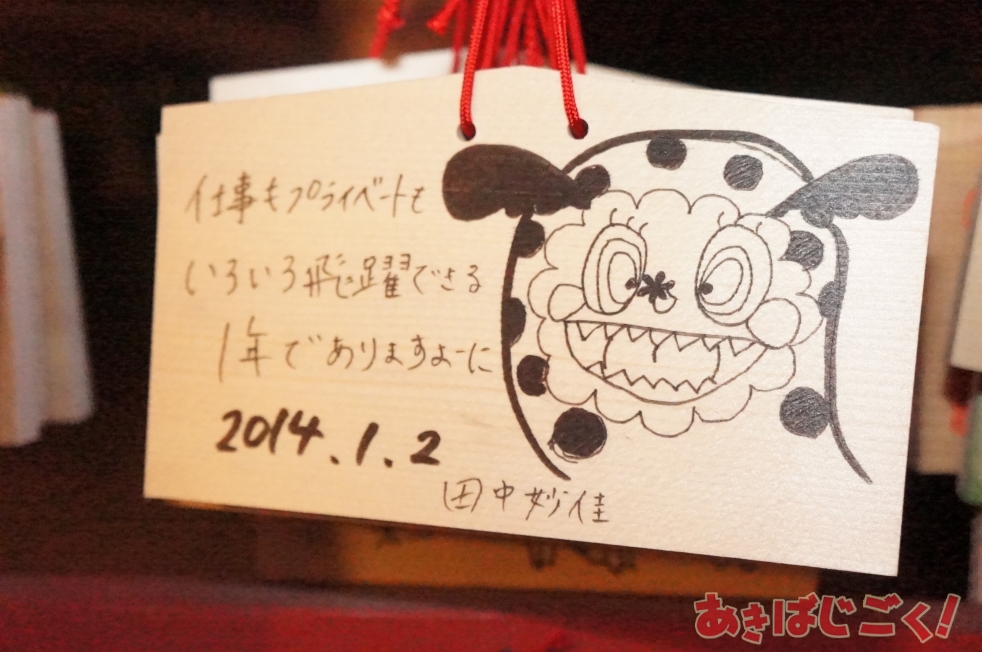 仕事もプライベートも
いろいろ飛躍できる
1年でありますよーに
2014.1.2
田中妙佳
あきばじごく!